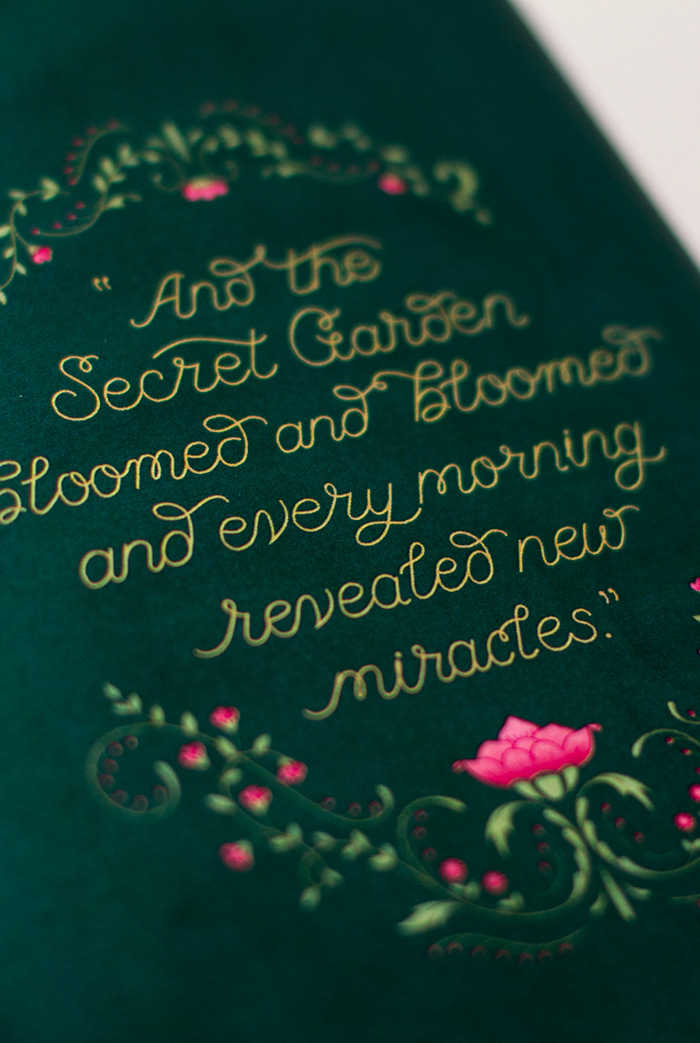 “And the
Secret Garden
bloomed and bloomed
and every morning
revealed new
miracles.”